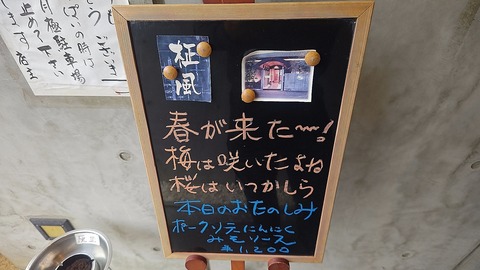 柾風
春が来た〜!
梅は咲いたよね
桜はいつかしら
本日のおたのしみ
ポークソテーにんにく
みそソース
¥1,200
月極駐車場
止めて下さい
店主